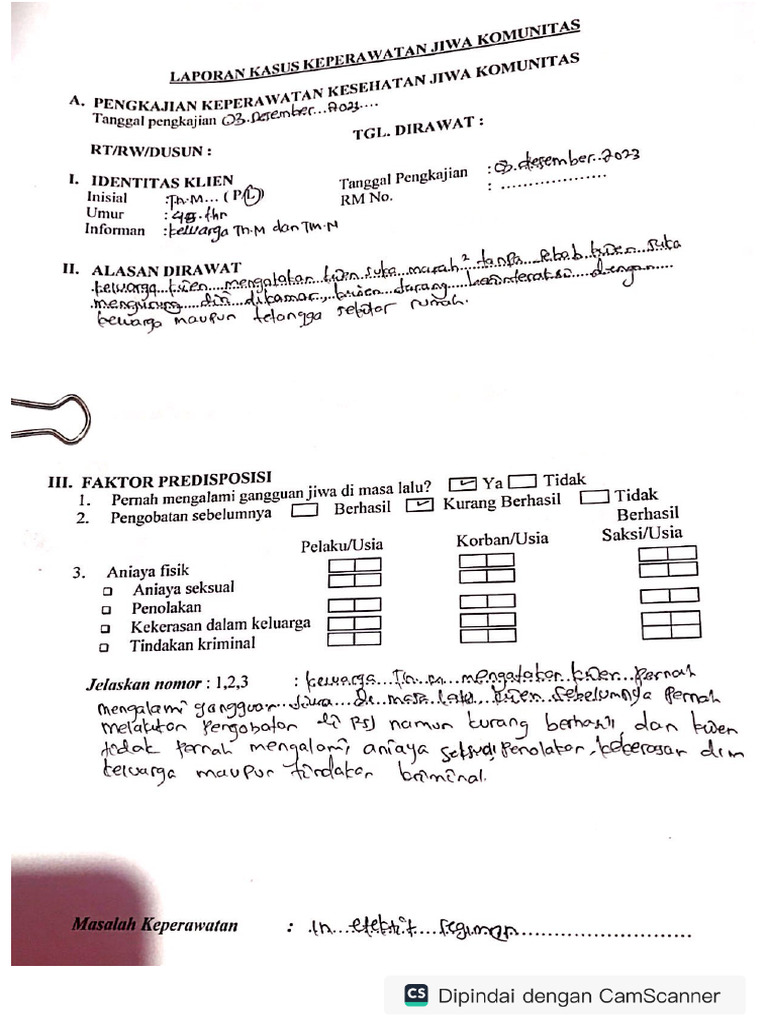 LAPORAN KASUS KEPERAWATAN JIWA KOMUNITAS
A. PENGKAJIAN KEPERAWATAN KESEHATAN JIWA KOMUNITAS
Tanggal pengkajian 03.Desember...2023....
TGL. DIRAWAT :
RT/RW/DUSUN :
I. IDENTITAS KLIEN
Tanggal Pengkajian : 03.desember..2023
Inisial : Tn.M... ( P/L )
RM No. : ..................
Umur : thn
Informan : keluarga Tn.M dan Tn.M
II. ALASAN DIRAWAT
keluarga...klien...mengatakan klien suka...marah² tanpa...sebab klien...suka
mengurung...diri...dikamar,...klien...kurang....berinteraksi...dengan.....
keluarga maupun tetangga sekitar rumah.
III. FAKTOR PREDISPOSISI
1. Pernah mengalami gangguan jiwa di masa lalu? ✓ Ya Tidak
2. Pengobatan sebelumnya Berhasil ✓ Kurang Berhasil Tidak Berhasil
Pelaku/Usia Korban/Usia Saksi/Usia
3. Aniaya fisik
Aniaya seksual
Penolakan
Kekerasan dalam keluarga
Tindakan kriminal
Jelaskan nomor : 1,2,3 : keluarga...Tn.M...mengatakan klien...Pernah
mengalami gangguan...Jiwa...Di...masa lalu,..klien sebelumnya pernah
melakukan pengobatan di RSJ namun kurang berhasil, dan klien
tidak pernah mengalami aniaya seksual, penolakan, kekerasan dlm
keluarga maupun tindakan kriminal.
Masalah Keperawatan : .In...efektif....regimen..............................
CS Dipindai dengan CamScanner